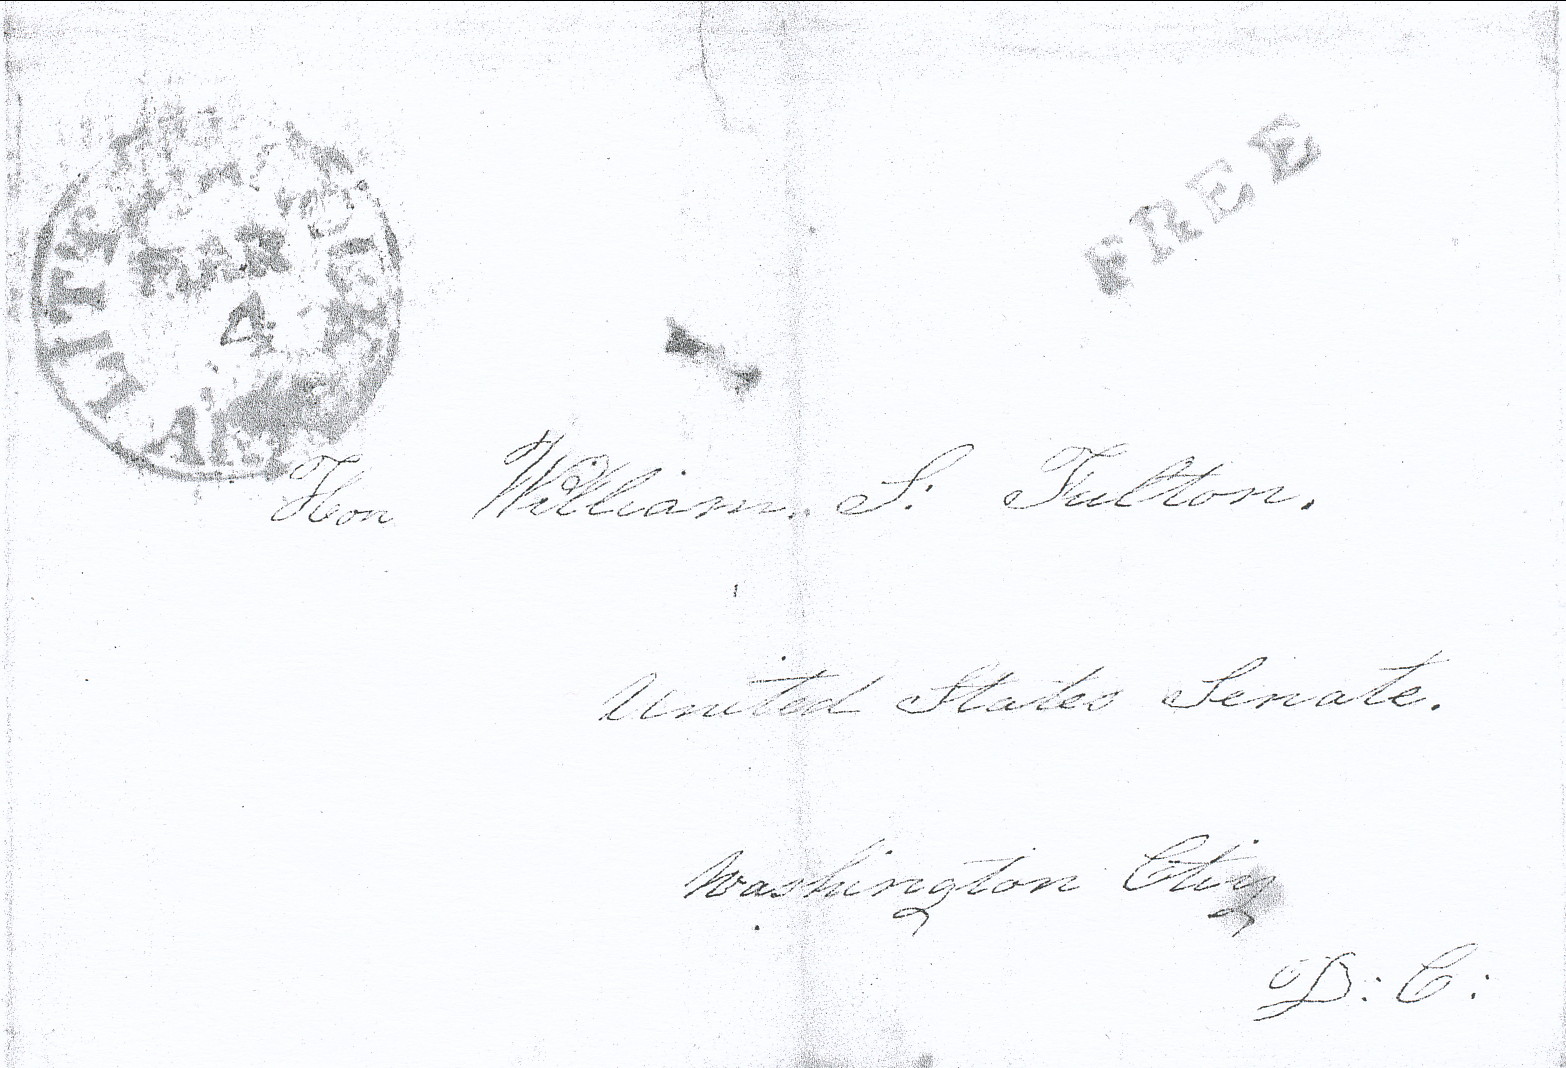 LITTLE ROCK
4
AR
FREE
Hon William. S. Fulton.
United States Senate.
Washington City
D: C: